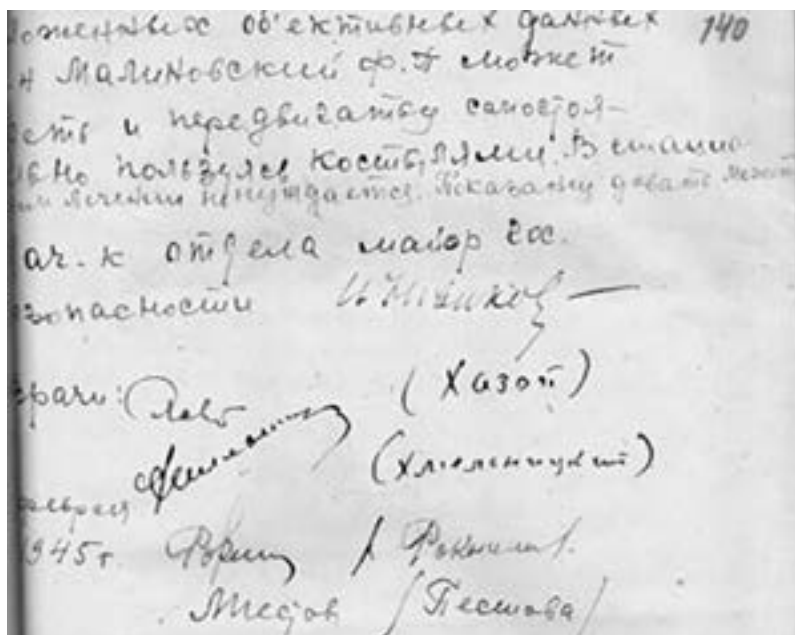 оженных об'ективных данных 140
н Малиновский Ф.П может
сть и передвигатьу самостоя-
льно пользуяся костылями. В стацио
ном лечении ненуждается. Показания давать может
ач. к отдела майор гос.
езопасности
врачи: (Хазов)
(Хмельницкий)
февраля
1945 г.
(Пестова)